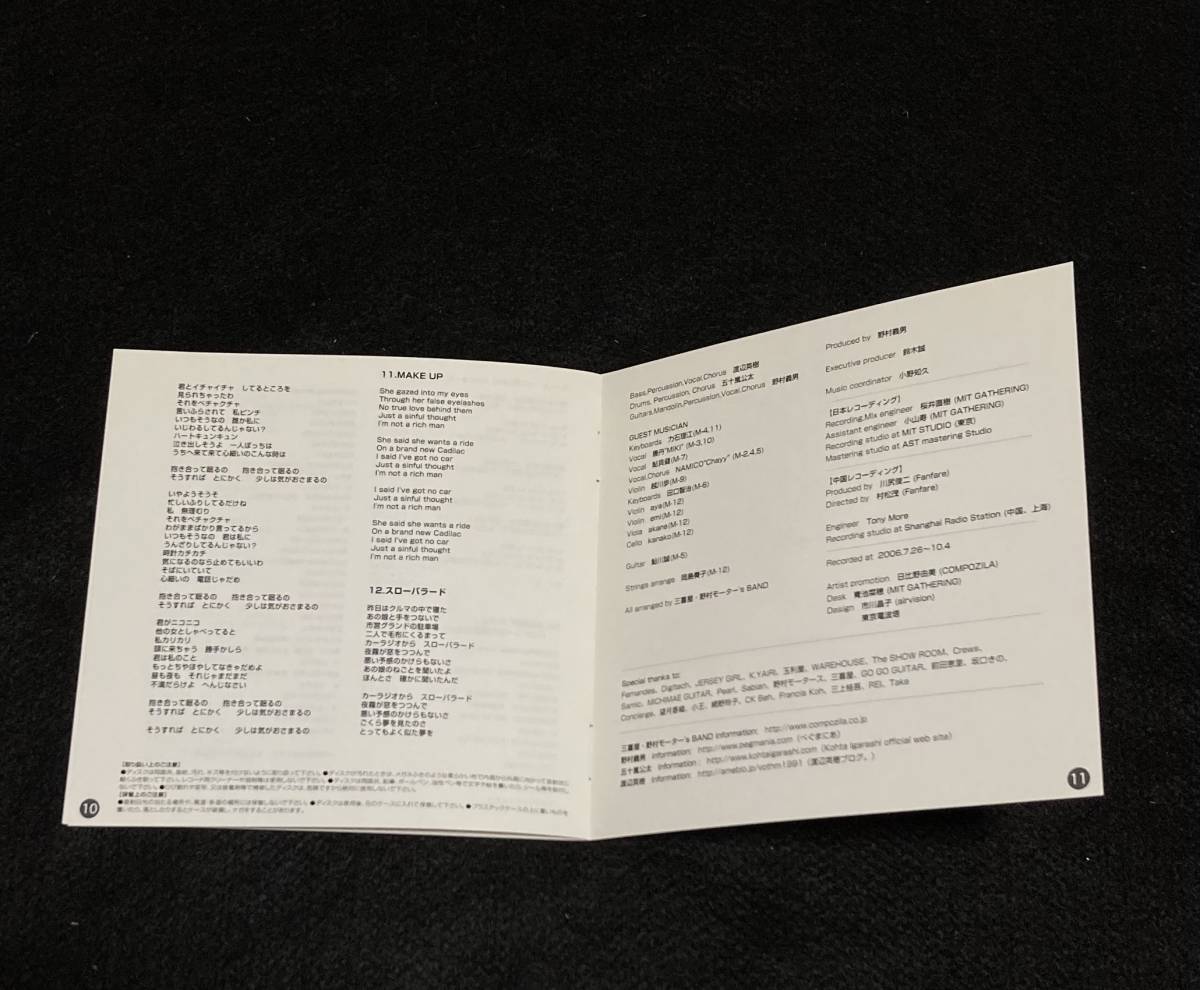 君とイチャイチャ　してるところを
見られちゃったわ
それをペチャクチャ
言いふらされて　私ピンチ
いつもそうなの　誰か私に
いじわるしてるんじゃない?
ハートキュンキュン
泣き出しそうよ　一人ぼっちは
うちへ来て来て心細いのこんな時は
抱き合って眠るの　抱き合って眠るの
そうすれば　とにかく　少しは気がおさまるの
いやようそうそ
忙しいふりしてるだけね
私　無理むり
それをペチャクチャ
わがままばかり言ってるから
いつもそうなの　君は私に
うんざりしてるんじゃない?
時計カチカチ
気になるのなら止めてもいいわ
そばにいていて
心細いの　電話じゃだめ
抱き合って眠るの　抱き合って眠るの
そうすれば　とにかく　少しは気がおさまるの
君がニコニコ
他の女としゃべってると
私カリカリ
頭に来ちゃう　勝手かしら
君は私のこと
もっとちやほやしてなきゃだめよ
昼も夜も　それじゃまだまだ
不満だらけよ　へんじなさい
抱き合って眠るの　抱き合って眠るの
そうすれば　とにかく　少しは気がおさまるの
そうすれば　とにかく　少しは気がおさまるの
11.MAKE UP
She gazed into my eyes
Through her false eyelashes
No true love behind them
Just a sinful thought
I'm not a rich man
She said she wants a ride
On a brand new Cadilac
I said I've got no car
Just a sinful thought
I'm not a rich man
I said I've got no car
Just a sinful thought
I'm not a rich man
She said she wants a ride
On a brand new Cadilac
I said I've got no car
Just a sinful thought
I'm not a rich man
12.スローバラード
昨日はクルマの中で寝た
あの娘と手をつないで
市営グランドの駐車場
二人で毛布にくるまって
カーラジオから　スローバラード
夜霧が窓をつつんで
悪い予感のかけらもないさ
あの娘のねごとを聞いたよ
ほんとさ　確かに聞いたんだ
カーラジオから　スローバラード
夜霧が窓をつつんで
悪い予感のかけらもないさ
ごくら夢を見たのさ
とってもよく似た夢を
【取り扱い上のご注意】
【保管上のご注意】
10
Bass,Percussion,Vocal,Chorus　渡辺英樹
Drums, Percussion, Chorus　五十嵐公太
Guitars,Mandolin,Percussion,Vocal,Chorus　野村義男
GUEST MUSICIAN
Keyboards　力石理江(M-4,11)
Vocal　"MIKI" (M-3,10)
Vocal　鮎貝健(M-7)
Vocal,Chorus　NAMICO"Chayy" (M-2,4,5)
Violin　越川歩(M-9)
Keyboards　田口智治(M-6)
Violin　aya(M-12)
Violin　emi(M-12)
Viola　akane(M-12)
Cello　kanako(M-12)
Guitar　鮎川誠(M-5)
Strings arrange　岡島費子(M-12)
All arranged by 三喜屋・野村モーター's BAND
Produced by　野村義男
Executive producer　鈴木誠
Music coordinator　小野知久
【日本レコーディング】
Recording,Mix engineer　桜井直樹 (MIT GATHERING)
Assistant engineer　小山寿 (MIT GATHERING)
Recording studio at MIT STUDIO (東京)
Mastering studio at AST mastering Studio
【中国レコーディング】
Produced by　川尻俊二 (Fanfare)
Directed by　村松茂 (Fanfare)
Engineer　Tony More
Recording studio at Shanghai Radio Station (中国、上海)
Recorded at　2006.7.26〜10.4
Artist promotion　日比野由美 (COMPOZILA)
Desk　菊池菜穂 (MIT GATHERING)
Design　市川晶子 (airvision)
東京電波塔
Special thanks to:
Fernandes, Digitech, JERSEY GIRL, K.YAIRI, 玉利屋, WAREHOUSE, The SHOW ROOM, Crews,
Samic, MICHIMAE GUITAR, Pearl, Sabian, 野村モータース, 三喜屋, GO GO GUITAR, 前田恵里, 坂口きの,
Concierge, 望月香織, 小王, 細野玲子, CK Beh, Francis Koh, 三上桂吾, REI, Taka
三喜屋・野村モーター's BAND information:　http://www.compozila.co.jp
野村義男　information:　http://www.pegmania.com (ぺぐまにあ)
五十嵐公太　information:　http://www.kohtaigarashi.com (Kohta Igarashi official web site)
渡辺英樹　information:　http://ameblo.jp/vothm1991 (渡辺英樹ブログ。)
11